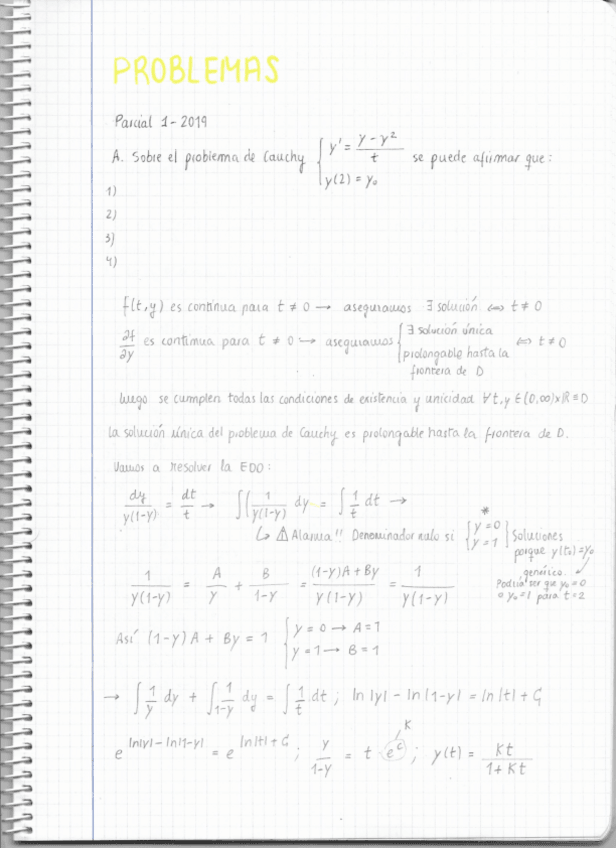 PROBLEMAS
Parcial 1 - 2019
A. Sobre el problema de Cauchy { y' = (y - y²)/t ; y(2) = y₀ se puede afirmar que:
1)
2)
3)
4)
f(t,y) es continua para t ≠ 0 → aseguramos ∃ solución ⇔ t ≠ 0
∂f/∂y es continua para t ≠ 0 → aseguramos { ∃ solución única prolongable hasta la frontera de D ⇔ t ≠ 0
luego se cumplen todas las condiciones de existencia y unicidad ∀ t,y ∈ (0,∞)×ℝ ≡ D
La solución única del problema de Cauchy es prolongable hasta la frontera de D.
Vamos a resolver la EDO:
dy/(y(1-y)) = dt/t → ∫(1/(y(1-y)) dy = ∫ 1/t dt →
↳ ⚠ Alarma!! Denominador nulo si { y = 0 y = 1 } * Soluciones
porque y(t₀)=y₀
genérico.
Podría ser que y₀ = 0
o y₀ = 1 para t = 2
1/(y(1-y)) = A/y + B/(1-y) = ((1-y)A + By)/(y(1-y)) = 1/(y(1-y))
Así (1-y)A + By = 1 { y = 0 → A = 1
y = 1 → B = 1
→ ∫ 1/y dy + ∫ 1/(1-y) dy = ∫ 1/t dt ; ln|y| - ln|1-y| = ln|t| + C
e^(ln|y| - ln|1-y|) = e^(ln|t| + C) ; y/(1-y) = t · e^C K ; y(t) = Kt/(1 + Kt)